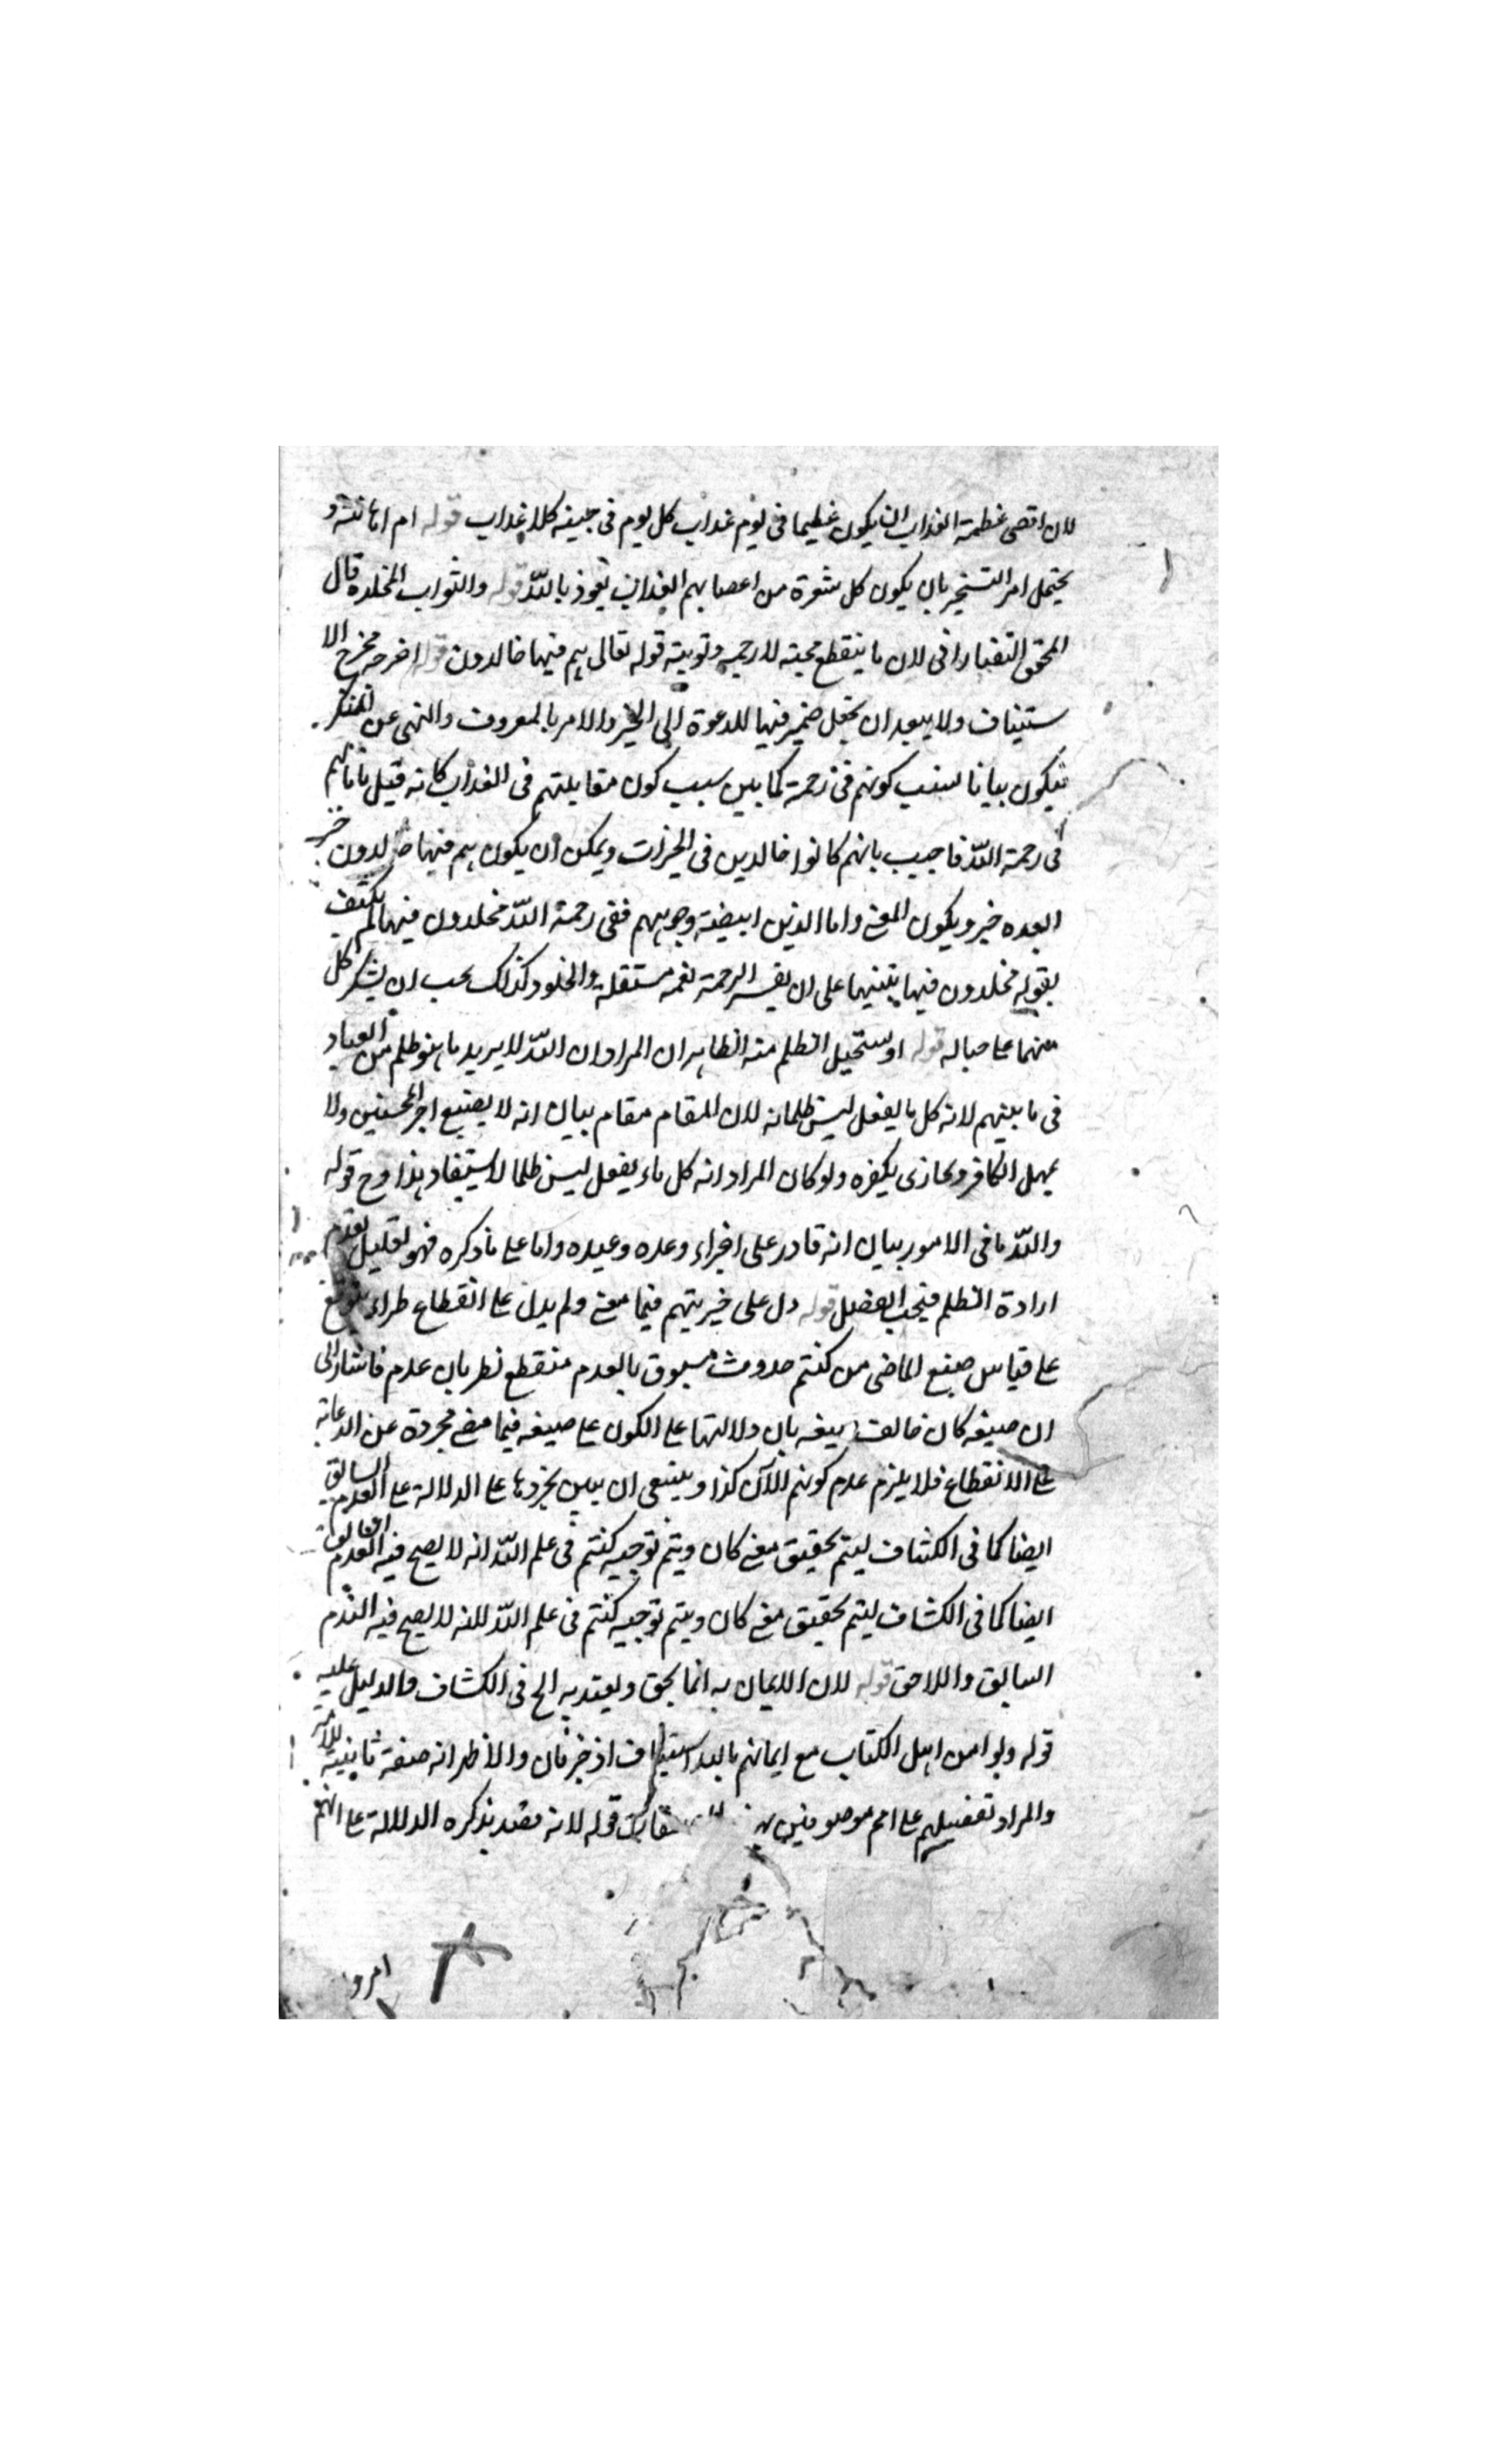 لان اقصى عظمة العذاب ان يكون عظيما فى يوم عذاب كل يوم فى جنبه كلا عذاب قوله ام اهانة و
يحتمل امر التسخير بان يكون كل شعرة من اعصابهم العذاب نعوذ بالله قوله والثواب المخلد قال
المحقق التفتازانى لان ما ينقطع محبته لا رحمة قوله تعالى هم فيها خالدون قوله اخرجه مخرج الا
ستيناف ولا يبعد ان يجعل ضمير فيها للدعوة الى الخير والامر بالمعروف والنهى عن المنكر
فيكون بيانا لسبب كونهم فى رحمة كما بين سبب كون مقابليهم فى العذاب كانه قيل ما بالهم
فى رحمة الله فاجيب بانهم كانوا خالدين فى الخيرات ويمكن ان يكون هم فيها خالدون خبر
البعده خبر ويكون المعنى واما الذين ابيضت وجوههم ففى رحمة الله مخلدون فيها لم يكتف
بقوله مخلدون فيها تنبيها على ان نفس الرحمة نعمة مستقلة والخلود كذلك يجب ان يشكر كل
منهما على حياله قوله او يستحيل الظلم منه الظاهر ان المراد ان الله لا يريد ما هو ظلم من العباد
فى ما بينهم لانه كل ما يفعل ليس ظلما لان المقام مقام بيان انه لا يضيع اجر المحسنين ولا
يمهل الكافر ويجازى بكفره ولو كان المراد انه كل ما يفعل ليس ظلما لا يستفاد هذا وح قوله
والله ما فى الامور بيان انه قادر على اجراء وعده وعيده واما على ما ذكره فهو تعليل لعدم
ارادة الظلم فيجب الفصل قوله دل على خيريتهم فيما مضى ولم يدل على انقطاع طراء
على قياس صيغ الماضى من كنتم حدوث مسبوق بالعدم منقطع بطريان عدم فاشار الى
ان صيغة كان بان دلالتها على الكون على صيغة فيما مضى مجردة عن الدعاية
على الانقطاع فلا يلزم عدم كونهم الآن كذا وينبغى ان يبين تجردها على الدلالة على العدم السابق
ايضا كما فى الكشاف ليتم تحقيق معنى كان ويتم توجيه كنتم فى علم الله انه لا يصح فيه العدم
ايضا كما فى الكشاف ليتم تحقيق معنى كان ويتم توجيه كنتم فى علم الله لانه لا يصح فيه العدم
السابق واللاحق قوله لان الايمان به انما يحق ويعتد به الخ فى الكشاف والدليل عليه
قوله ولو امن اهل الكتاب مع ايمانهم بالله والاظهر انه صفة ثانية للامة
والمراد تفضيلهم على امم موصوفين قوله لانه قصد بذكره الدلالة على انهم
امرو